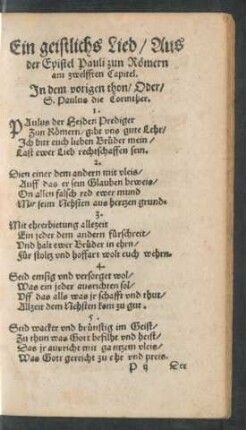 Ein geistlichs Lied / Aus
der Epistel Pauli zun Römern
am zwelfften Capitel.
In dem vorigen thon / Oder /
S. Paulus die Corinther.
1.
PAulus der Heiden Prediger
Zun Römern / gibt vns gute Lehr /
Ich bitt euch lieben Brüder mein /
Last ewer Lieb rechtschaffen sein.
2.
Dien einer dem andern mit vleis /
Auff das er sein Glauben beweis /
On allen falsch red ewer mund
Mit jeim Nehsten aus herzen grund.
3.
Mit ehrerbietung allezeit
Ein jeder dem andern fürschreit /
Vnd halt ewer Brüder in ehrn /
Für stoltz vnd hoffart wolt euch wehrn.
4.
Seid emsig vnd versorget wol /
Was ein jeder ausrichten sol /
Vff das alls was jr schafft vnd thut /
Allzeit dem Nehsten kom zu gut.
5.
Seid wacker vnd brünstig im Geist /
Zu thun was Gott befilht vnd heist /
Das jr ausricht mit gantzem vleis /
Was Gott gereicht zu ehr vnd preis.
P ij Der